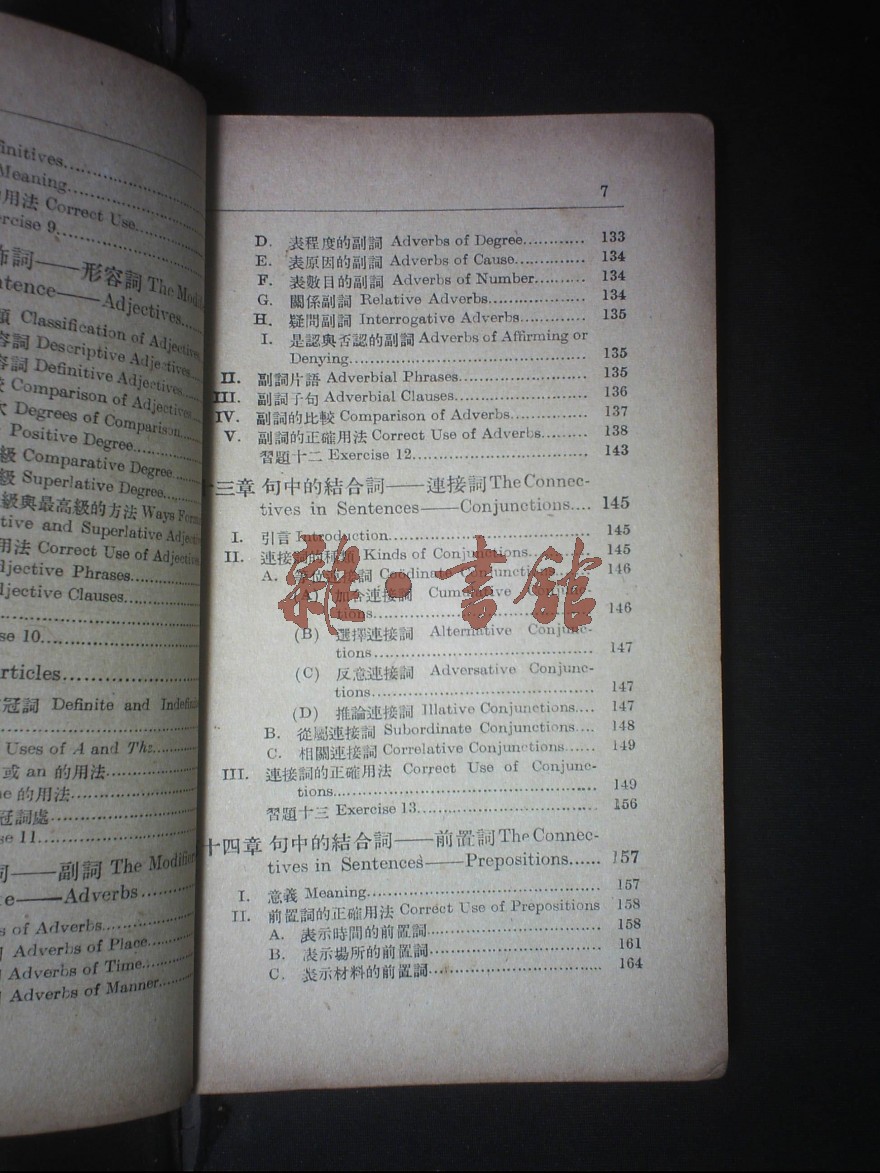 finitives
Meaning
的用法 Correct Use
ercise 9
飾詞——形容詞 The Modi
ntence——Adjectives
Classification of Adjectives
容詞 Descriptive Adjectives
容詞 Definitive Adjectives
Comparison of Adjectives
Degrees of Comparison
Positive Degree
級 Comparative Degree
級 Superlative Degree
級與最高級的方法 Ways Form
tive and Superlative Adjec
用法 Correct Use of Adjectiv
djective Phrases
djective Clauses
se 10
rticles
冠詞 Definite and Indefini
Uses of A and The
或 an 的用法
he 的用法
冠詞處
se 11
詞——副詞 The Modifier
e——Adverbs
s of Adverbs
Adverbs of Place
Adverbs of Time
Adverbs of Manner
7
D. 表程度的副詞 Adverbs of Degree............ 133
E. 表原因的副詞 Adverbs of Cause............ 134
F. 表數目的副詞 Adverbs of Number.......... 134
G. 關係副詞 Relative Adverbs................ 134
H. 疑問副詞 Interrogative Adverbs............ 135
I. 是認與否認的副詞 Adverbs of Affirming or
Denying.................................... 135
II. 副詞片語 Adverbial Phrases.................. 135
III. 副詞子句 Adverbial Clauses.................. 136
IV. 副詞的比較 Comparison of Adverbs............ 137
V. 副詞的正確用法 Correct Use of Adverbs......... 138
習題十二 Exercise 12........................ 143
十三章 句中的結合詞——連接詞 The Connec-
tives in Sentences——Conjunctions.... 145
I. 引言 Introduction............................ 145
II. 連接詞的種類 Kinds of Conjunctions........... 145
A. 等位連接詞 Coödinate Conjunctions........ 146
(A) 加合連接詞 Cumulative Conjunc-
tions................................ 146
(B) 選擇連接詞 Alternative Conjunc-
tions................................ 147
(C) 反意連接詞 Adversative Conjunc-
tions................................ 147
(D) 推論連接詞 Illative Conjunctions.... 147
B. 從屬連接詞 Subordinate Conjunctions.... 148
C. 相關連接詞 Correlative Conjunctions...... 149
III. 連接詞的正確用法 Correct Use of Conjunc-
tions...................................... 149
習題十三 Exercise 13........................ 156
十四章 句中的結合詞——前置詞 The Connec-
tives in Sentences——Prepositions...... 157
I. 意義 Meaning................................ 157
II. 前置詞的正確用法 Correct Use of Prepositions 158
A. 表示時間的前置詞........................ 158
B. 表示場所的前置詞........................ 161
C. 表示材料的前置詞........................ 164
雜·書館